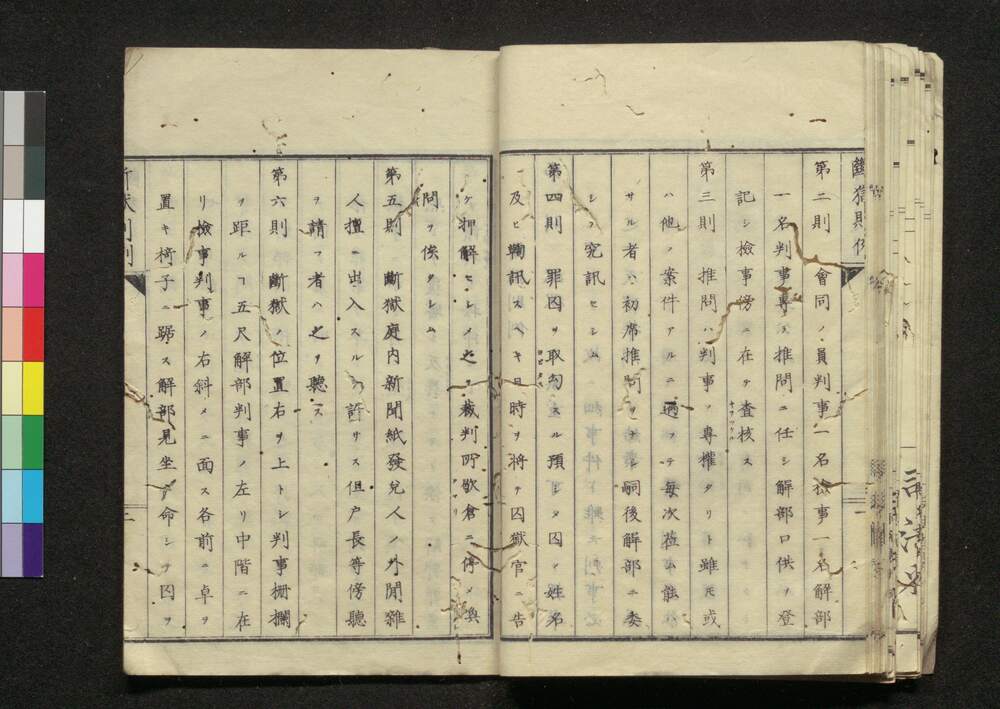 第二則 會同ノ員判事一名檢事一名解部
一名判事專ラ推問ニ任シ解部口供ヲ登
記シ檢事傍ニ在テ査核ス
第三則 推問ハ判事ノ專權タリト雖モ或
ハ他ノ案件アルニ遇フテ每次莅ム能ハ
サル者ハ初席推問ヲナシ嗣後解部ニ委
シテ究訊セシム
第四則 罪囚ヲ取勾スルハ預シメ囚ノ姓名
及ヒ鞫訊スヘキ日時ヲ將テ囚獄官ニ告
ケ押解セシメ之ヲ裁判所歇倉ニ停メ喚
問ヲ俟タシム
第五則 斷獄庭内新聞紙發兌人ノ外閒雜
人擅ニ出入スルヲ許サス但戸長等傍聽
ヲ請フ者ハ之ヲ聽ス
第六則 斷獄ノ位置右ヲ上トシ判事柵欄
ヲ距ルヿ五尺解部判事ノ左リ中階ニ在
リ檢事判事ノ右斜メニ面ス各前ニ卓ヲ
置キ椅子ニ踞ス解部見坐ヲ命シテ囚ヲ